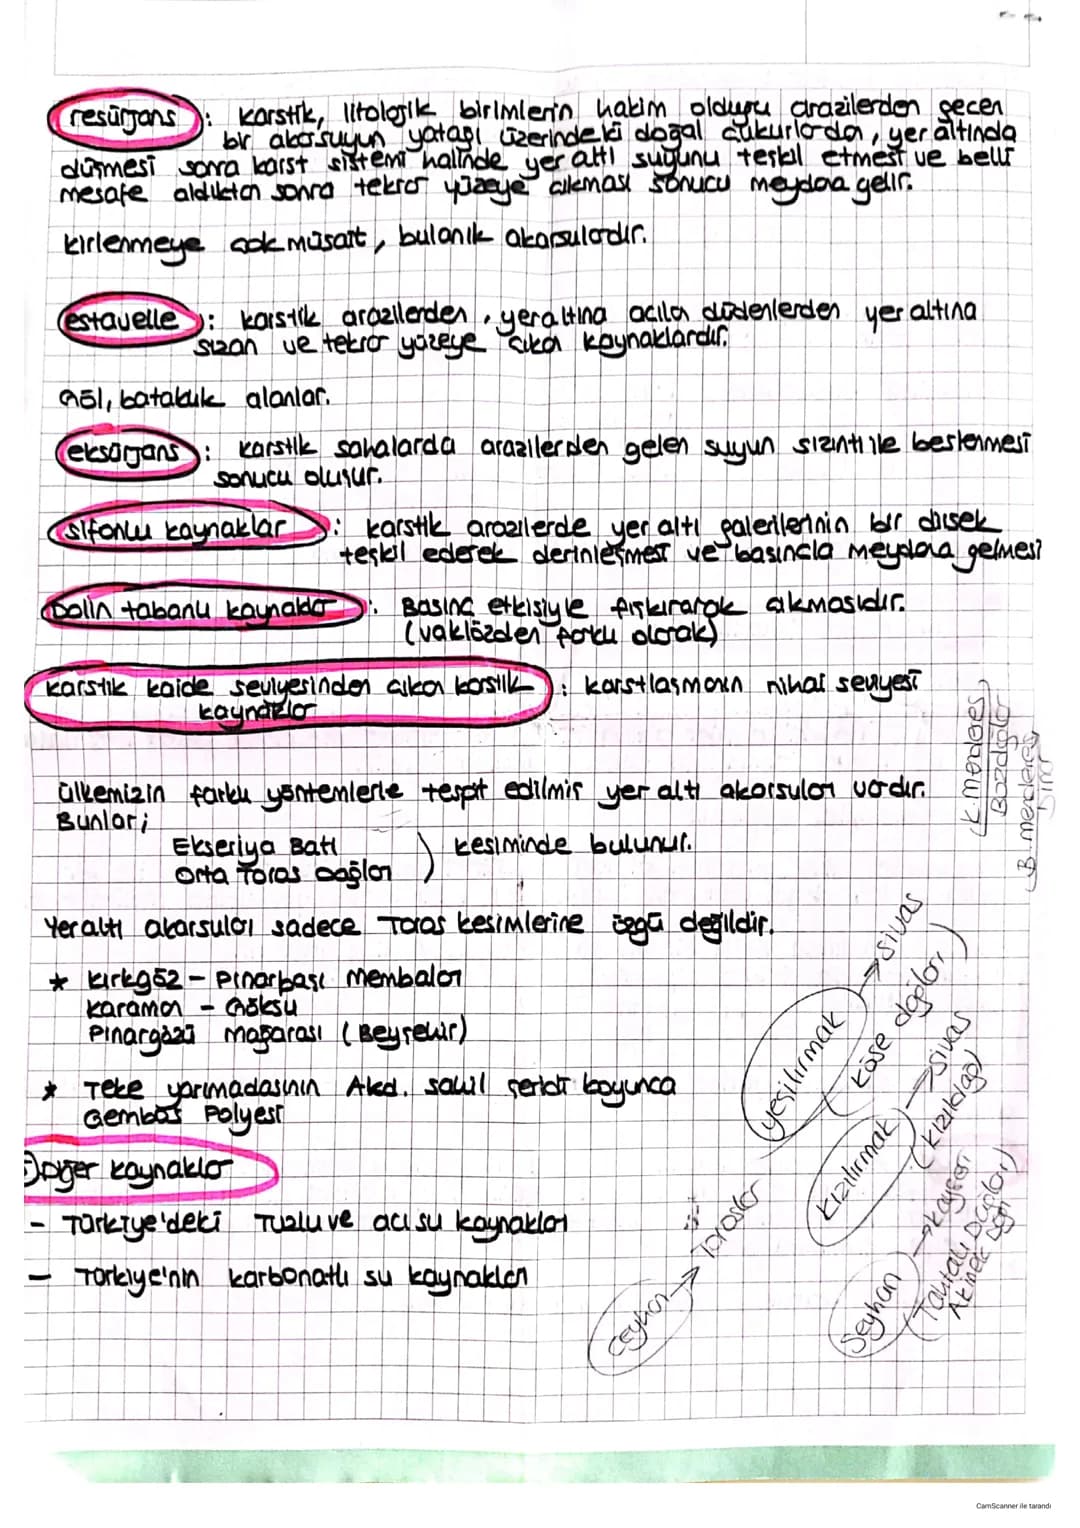 resürjans : karstik, litolojik birimlerin hakim olduğu arazilerden geçen
bir akarsuyun yatağı üzerindeki doğal çukurlarda, yer altında
düşmesi sonra karst sistemi halinde yer altı suyunu teşkil etmesi ve belli
mesafe aldıktan sonra tekrar yüzeye çıkması sonucu meydana gelir.
kirlenmeye çok müsait, bulanık akarsulardır.
estavelle : karstik arazilerden, yeraltına açılan düdenlerden yer altına
sızan ve tekrar yüzeye çıkan kaynaklardır.
Göl, bataklık alanlar.
eksürjans : karstik sahalarda arazilerden gelen suyun sızıntı ile beslenmesi
sonucu oluşur.
sifonlu kaynaklar : karstik arazilerde yer altı galerilerinin bir dirsek
teşkil ederek derinleşmesi ve basınçla meydana gelmesi
Dolin tabanlı kaynaklar : Basınç etkisiyle fışkırarak akmasıdır.
(voklüzden farklı olarak)
karstik kaide seviyesinden çıkan karstik : karstlaşmanın nihai seviyesi
kaynaklar
(K. menderes)
Bozdağlar
B. menderes
Dinar
Ülkemizin farklı yöntemlerle tespit edilmiş yer altı akarsuları vardır.
Bunlar;
Ekseriya Batı
Orta Toros Dağları ) kesiminde bulunur.
Yeraltı akarsuları sadece Toros kesimlerine özgü değildir.
* Kırkgöz - Pınarbaşı Membaları
Karaman - Göksu
Pınargözü mağarası (Beyşehir)
* Teke yarımadasının Akd. sahil şeridi boyunca
Gembos Polyesi
Diğer kaynaklar
- Türkiye'deki Tuzlu ve acı su kaynakları
- Türkiye'nin karbonatlı su kaynakları
yeşilırmak → sivas
(köse dağları)
Kızılırmak → sivas
(kızıldağ)
Seyhan → kayseri
(Tahtalı Dağları)
Ceyhan → Toroslar
CamScanner ile tarandı